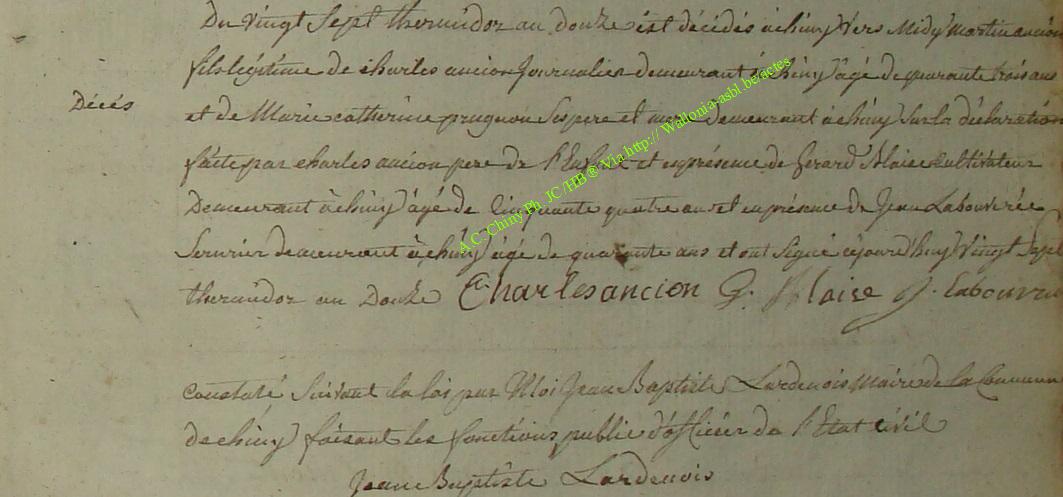 Du vingt Sept thermidor an douze est décédés à chiny vers Midy martin ancion
fils légitime de charles ancion Journalier demeurant à chiny âgé de quarante trois ans
Décés
et de Marie catherine prugnon Ses pere et mere demeurant à chiny Sur la déclaration
faite par charles ancion pere de l'Enfant et en présence de Gerard Blaise Cultivateur
Demeurant à chiny âgé de Cinquante quatre ans et en présence de Jean Labouverie
demeurant à chiny âgé de quarante ans et ont Signé cejourd'huy vingt Sept
thermidor an Douze Charles ancion G. Blaise J. Labouverie
constaté Suivant la loi par Moi Jean Baptiste Lardenois Maire de la Commune
de chiny faisant les fonctions public d'officier de l'Etat civil
Jean Baptiste Lardenois
A.C. Chiny Ph JC /HB ® Via http:// Wallonia-asbl.be/actes